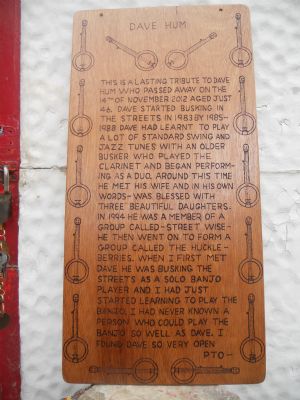 DAVE HUM
THIS IS A LASTING TRIBUTE TO DAVE
HUM WHO PASSED AWAY ON THE
14TH OF NOVEMBER 2012 AGED JUST
46. DAVE STARTED BUSKING IN
THE STREETS IN 1983 BY 1985-
1988 DAVE HAD LEARNT TO PLAY
A LOT OF STANDARD SWING AND
JAZZ TUNES WITH AN OLDER
BUSKER WHO PLAYED THE
CLARINET AND BEGAN PERFORM-
ING AS A DUO. AROUND THIS TIME
HE MET HIS WIFE AND IN HIS OWN
WORDS- WAS BLESSED WITH
THREE BEAUTIFUL DAUGHTERS.
IN 1994 HE WAS A MEMBER OF A
GROUP CALLED - STREET WISE -
HE THEN WENT ON TO FORM A
GROUP CALLED THE HUCKLE-
BERRIES. WHEN I FIRST MET
DAVE HE WAS BUSKING THE
STREETS AS A SOLO BANJO
PLAYER AND I HAD JUST
STARTED LEARNING TO PLAY THE
BANJO. I HAD NEVER KNOWN A
PERSON WHO COULD PLAY THE
BANJO SO WELL AS DAVE. I
FOUND DAVE SO VERY OPEN
PTO-